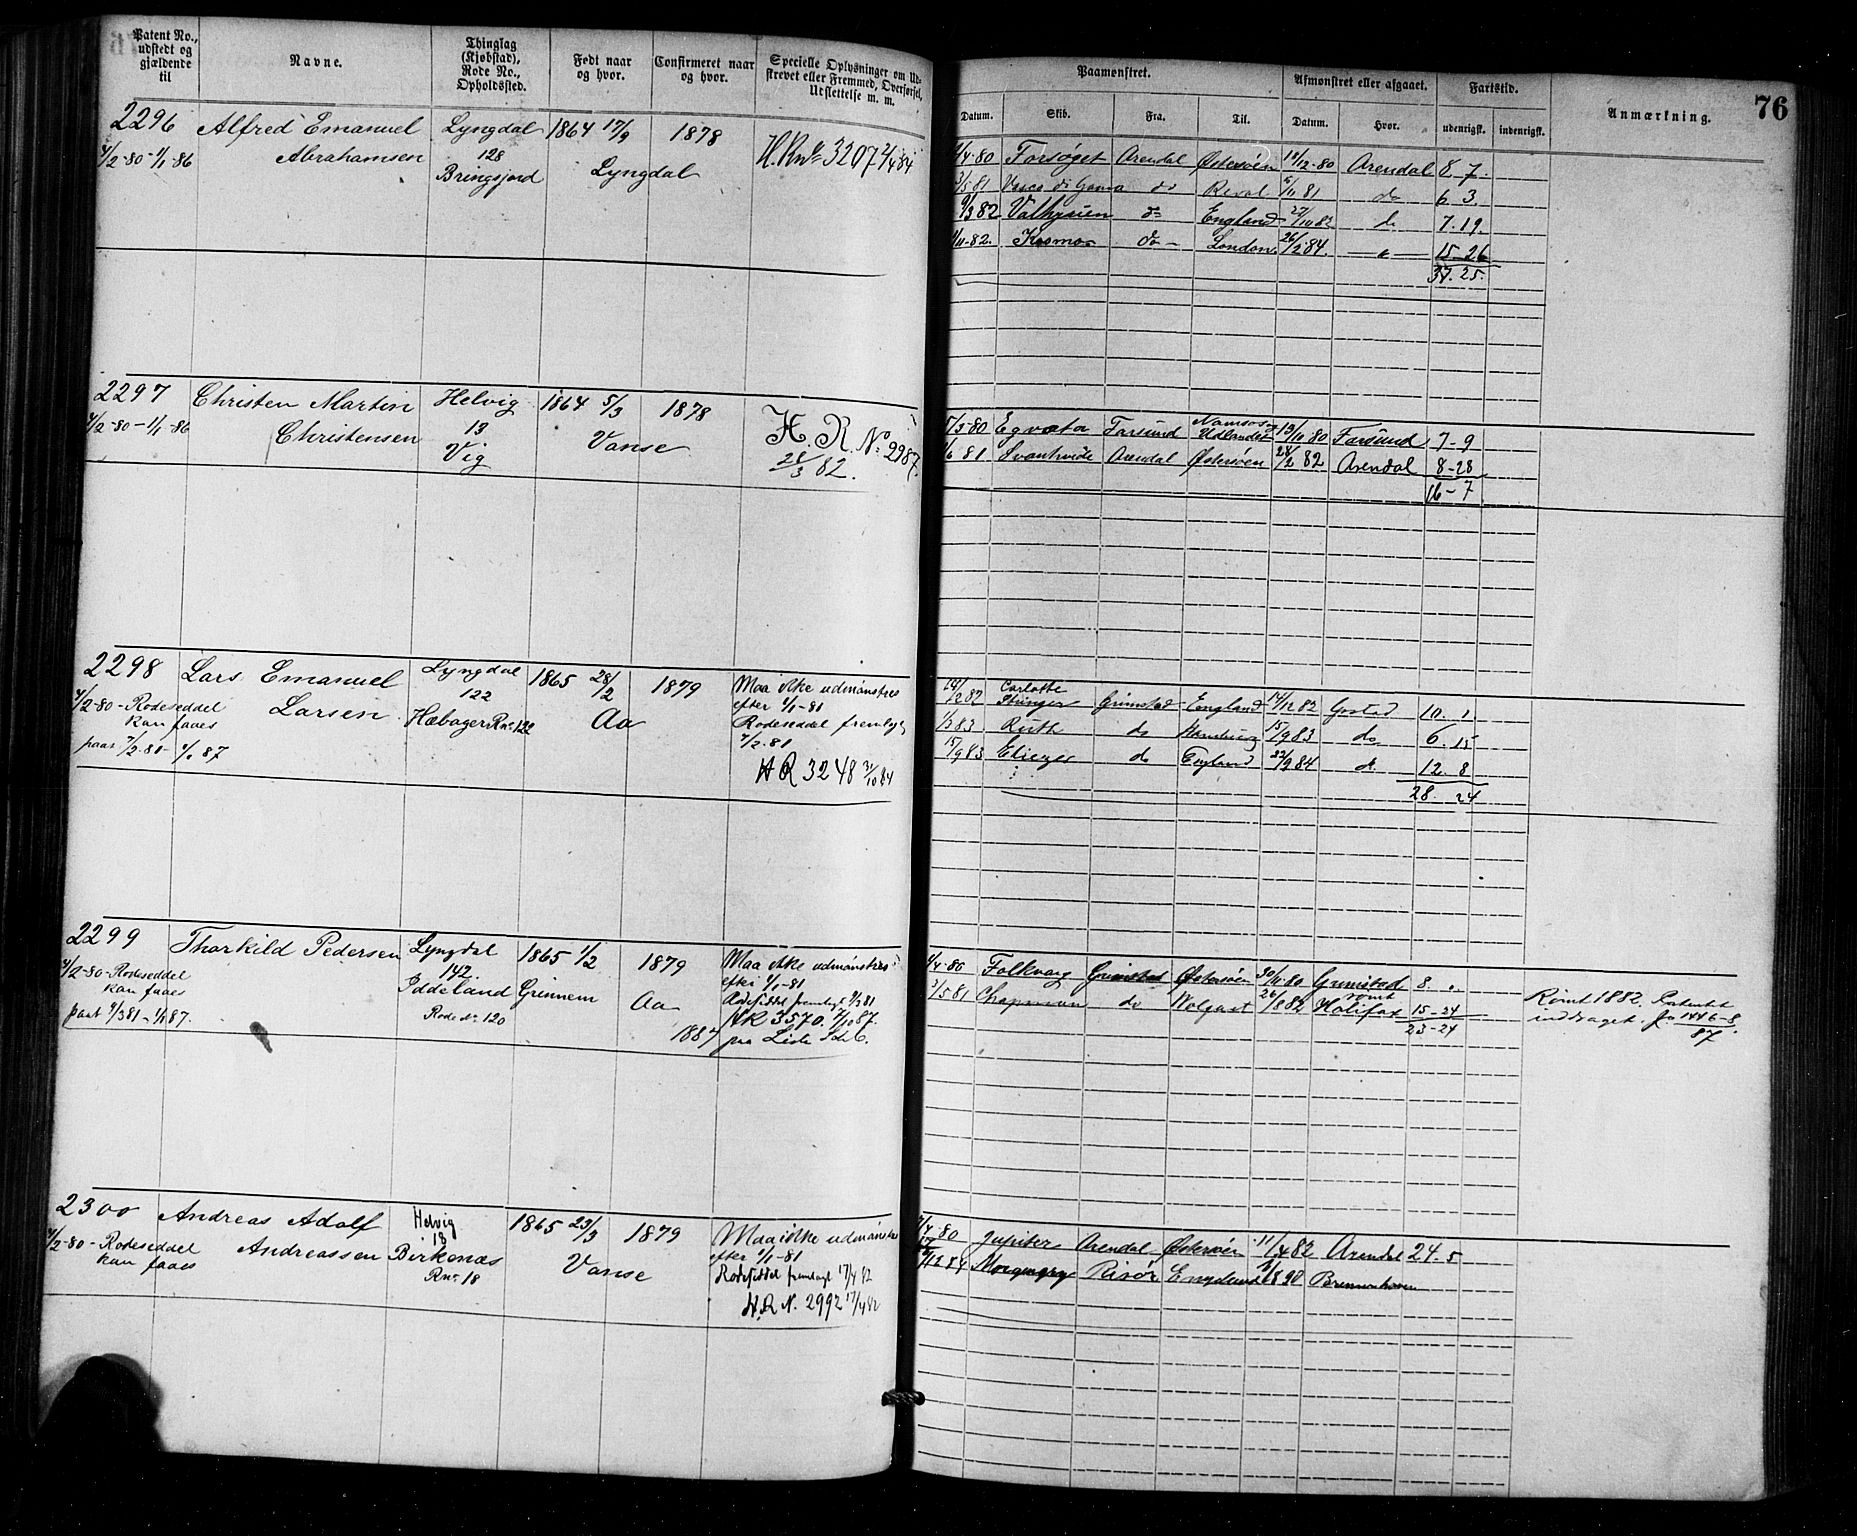 Patent No., udstedt og gjældende til
Navne.
Thinglag (Kjøbstad), Rode No., Opholdssted.
Født naar og hvor.
Confirmeret naar og hvor.
Specielle Oplysninger om Udskrevet eller Fremmed, Overførsel, Udslettelse m. m.
Paamønstret.
Afmønstret eller afgaaet.
Fartstid.
Anmærkning.
76
Datum. Skib. Fra. Til. Datum. Hvor. udenrigsk. indenrigsk.
2296 Alfred Emanuel Lyngdal 1864 17/9 1878
4/2-80-1/1-86 Abrahamsen 128 Lyngdal
Bringsjord
H.R. No 3207 2/4 84
4-80 Forsøget Arendal Østersøen 19/12-80 Arendal 8 7.
3/5 81 Vasco di Gama do Reval 81 do 6 3.
9/3 82 Valkyrien do England 27/10 82 do 7.19.
11-82. Kosmos do London 26/2 84. 15-26
37.25.
2297 Christen Martin Helvig 1864 5/3 1878
4/2-80-1/1-86 Christensen 13 Vanse
Vig
H. R. No 2987.
28/3 82.
3-80 Egvata Farsund Namsos Udlandet 13/10 80 Farsund 7-9
6 81 Svanhvide Arendal Østersøen 28/2 82 Arendal 8-28
16-7
2298 Lars Emanuel Lyngdal 1865 28/12 1879
4/2-80-Rodeseddel Larsen 122 Aa
kan faaes Hæbager Rn: 122
paar 7/2-81- 87
Maa ikke udmønstres
efter 1/1-81
Rodeseddel fremlagt
7/2-81
HR 3248 31/10 84
2 82 Carlotte Grimstad England 14/12 82 Grstad 10. 1
83 Ruth do Hamburg 15/9 83 do 6. 15
15/9 83 Eliezer do England 22/9 84 do 12. 8
28. 24
2299 Thorkild Pedersen Lyngdal 1865 1/2 1879
4/2-80-Rodeseddel 142. Grinnem Aa
kan faaes Iddeland
Rode No. 120
Maa ikke udmønstres
efter 1/1-81
Rodeseddel fremlagt 81
HR 3570. 10 87.
1887 paa Liste
4-80 Folkvang Grimstad Østersøen 30/11-80 Grimstad 8.
5 81 Chapman do Wolgast 26/8 82 rømt Halifax 15-24
23-24
Rømt 1882. Patentet
inddraget. jr. 1446-8/87.
2300 Andreas Adolf Helvig 1865 23/3 1879
4/2-80-Rodeseddel Andreassen 18 Vanse
kan faaes Birkenæs
Rn: 18
Maa ikke udmønstres
efter 1/1-81
Rodeseddel fremlagt 17/4 82
H.R N. 2992 17/4 82
4-80 Jupiter Arendal Østersøen 11/4 82 Arendal 24.5
12 84 Morgengry Risør England 8 90 Bremerhaven